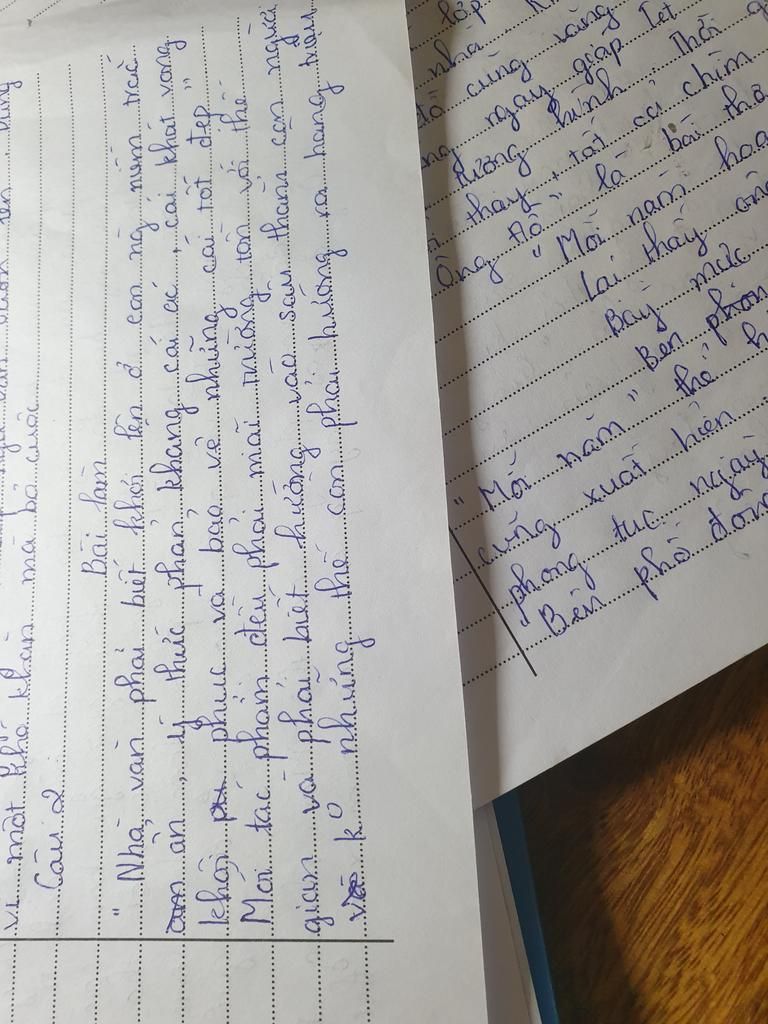 vì một khó khăn mà bỏ cuộc
Câu 2
Bài làm
"Nhà văn phải biết khơi lên ở con ng niềm trắc
ẩn, ý thức phản kháng cái ác, cái khát vọng
khôi phục và bảo vệ những cái tốt đẹp"
Mỗi tác phẩm đều phải mãi trường tồn với thế
gian và phải biết hướng vào sâu thẳm con người
k0 những thế còn phải hướng ra hàng trăm
lớp
nhà
đỏ cũng vàng
ngày giáp Tết
tượng hình Thời
thay, tất cả chìm
Ông Đồ" là bài thơ
"Mỗi năm hoa
Lại thấy ông
Bày mực
Bên phố
"Mỗi năm" thế
cũng xuất hiện
phong tục ngày
"Bên phố đông